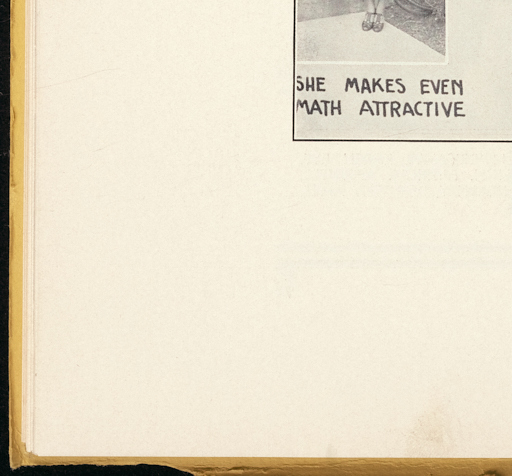 SHE MAKES EVEN
MATH ATTRACTIVE